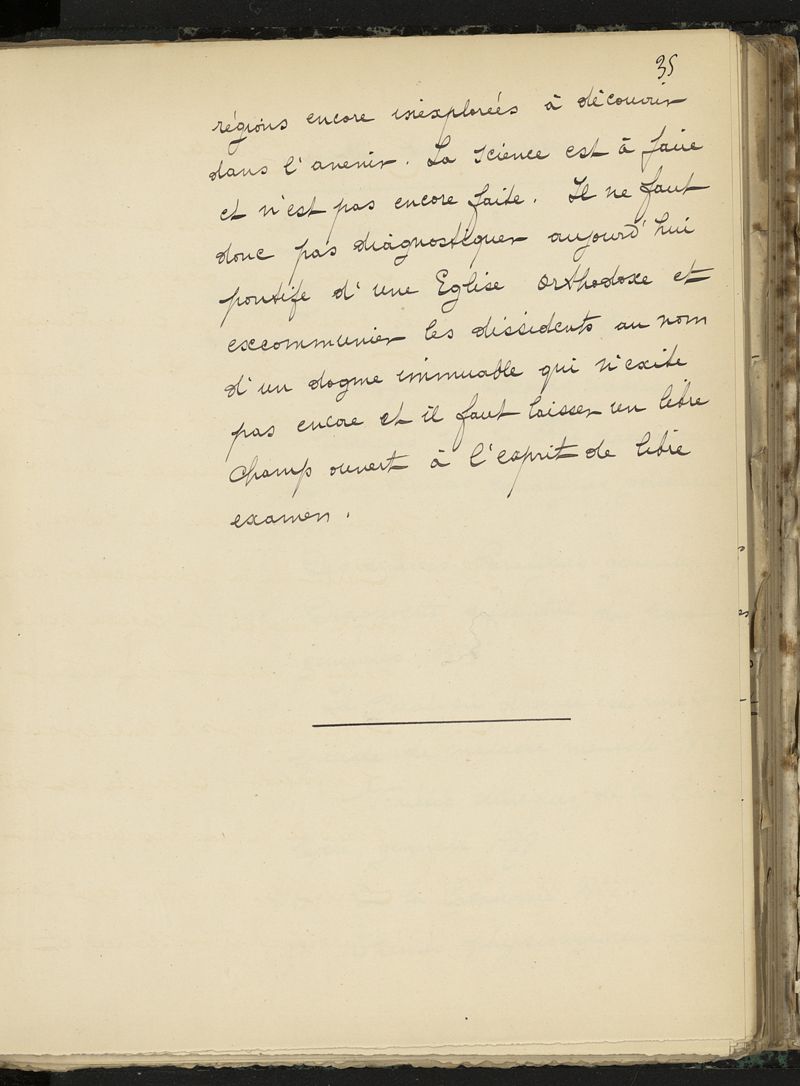 35
régions encore inexplorées à découvrir
dans l'avenir. La science est à faire
et n'est pas encore faite. Il ne faut
donc pas diagnostiquer aujourd'hui
pontife d'une Eglise orthodoxe et
excommunier les dissidents au nom
d'un dogme immuable qui n'exite
pas encore et il faut laisser un libre
champ ouvert à l'esprit de libre
examen.